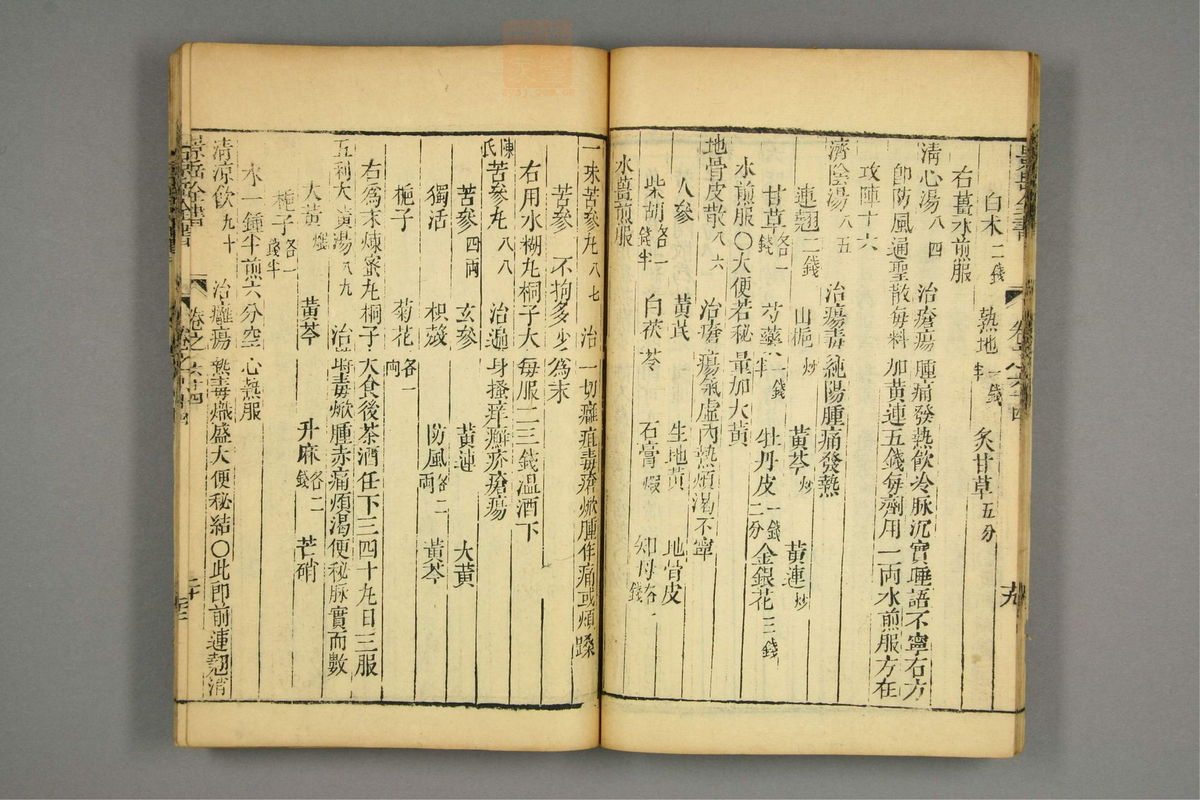 白术二錢　熟地一錢半　炙甘草五分
右薑水煎服
清心湯八四　治瘡瘍腫痛發熱飲冷脉沉實睡語不寧右方
即防風通聖散每料加黃連五錢每劑用一両水煎服方在
攻陣十六
濟陰湯八五　治瘍毒純陽腫痛發熱
連翹二錢　山梔炒　黃芩炒　黃連炒
甘草各一錢　芍藥一錢半　牡丹皮一錢二分　金銀花三錢
水煎服〇大便若秘量加大黃
地骨皮散八六　治瘡瘍氣虛內熱煩渴不寧
人參　黃芪　生地黃　地骨皮
柴胡各一錢半　白茯苓　石膏煅　知母各一錢
水薑煎服
一珠苦參丸八七　治一切癰疽毒瘡焮腫作痛或煩躁
苦參不拘多少為末
右用水糊丸桐子大每服二三錢溫酒下
陳氏苦參丸八八　治遍身搔痒癬疥瘡瘍
苦參四両　玄參　黃連　大黃
獨活　枳殼　防風各二両　黃芩
梔子　菊花各一両
右為末煉蜜丸桐子大食後茶酒任下三四十丸日三服
五利大黃湯八九　治時毒焮腫赤痛煩渴便秘脉實而數
大黃煨　黃芩　升麻各二錢　芒硝
梔子各一錢半
水一鍾半煎六分空心熱服
清涼飲九十　治癰瘍熱毒熾盛大便秘結〇此即前連翹消
景岳全書　卷之六十四